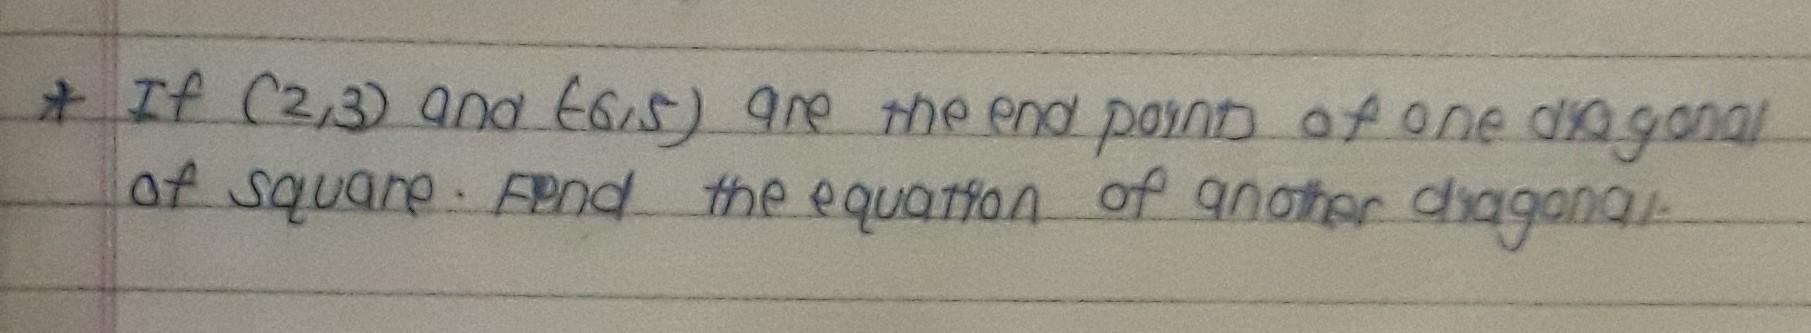 * If (2,3) and (-6,5) are the end points of one diagonal
of square. Find the equation of another diagonal.